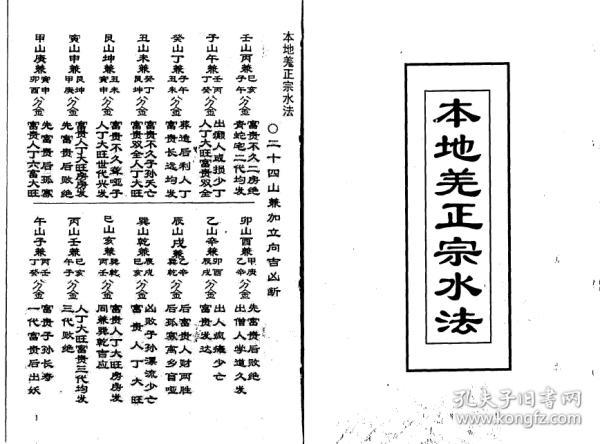 本地羌正宗水法
本地羗正宗水法
〇二十四山兼加立向吉凶断
壬山丙兼巳亥子午分金富贵不久二房绝
青蛇宅二代均发
子山午兼壬丙丁癸分金出懒人或损少丁
人丁大旺富贵双全
癸山丁兼子午丑未分金葬造后利人丁
富贵长远均发
丑山未兼癸丁艮坤分金富贵不久子孙夭亡
富贵双全人丁大旺
艮山坤兼丑未寅申分金富贵不久聋哑子
人丁大旺世代兴发
寅山申兼艮坤甲庚分金富贵人丁大旺房房发
先富贵后败绝
甲山庚兼寅申卯酉分金先富贵后孤寡
富贵人丁六富大旺
卯山酉兼甲庚乙辛分金先富贵后败绝
出僧人学道久发
乙山辛兼卯酉辰戌分金出人疯痪少亡
富贵发达
辰山戌兼乙辛巽乾分金后富贵人财两胜
后孤寡离乡盲哑
巽山乾兼辰戌巳亥分金凶败子孙漂流少亡
富贵人丁大旺
巳山亥兼巽乾丙壬分金富贵人丁大旺房房发
同兼巽乾吉应
丙山壬兼巳亥午子分金人丁大旺富贵三代均发
三代败绝
午山子兼丙壬丁癸分金富贵子孙长寿
一代富贵后出妖
1
孔夫子旧书网
www.kongfz.com